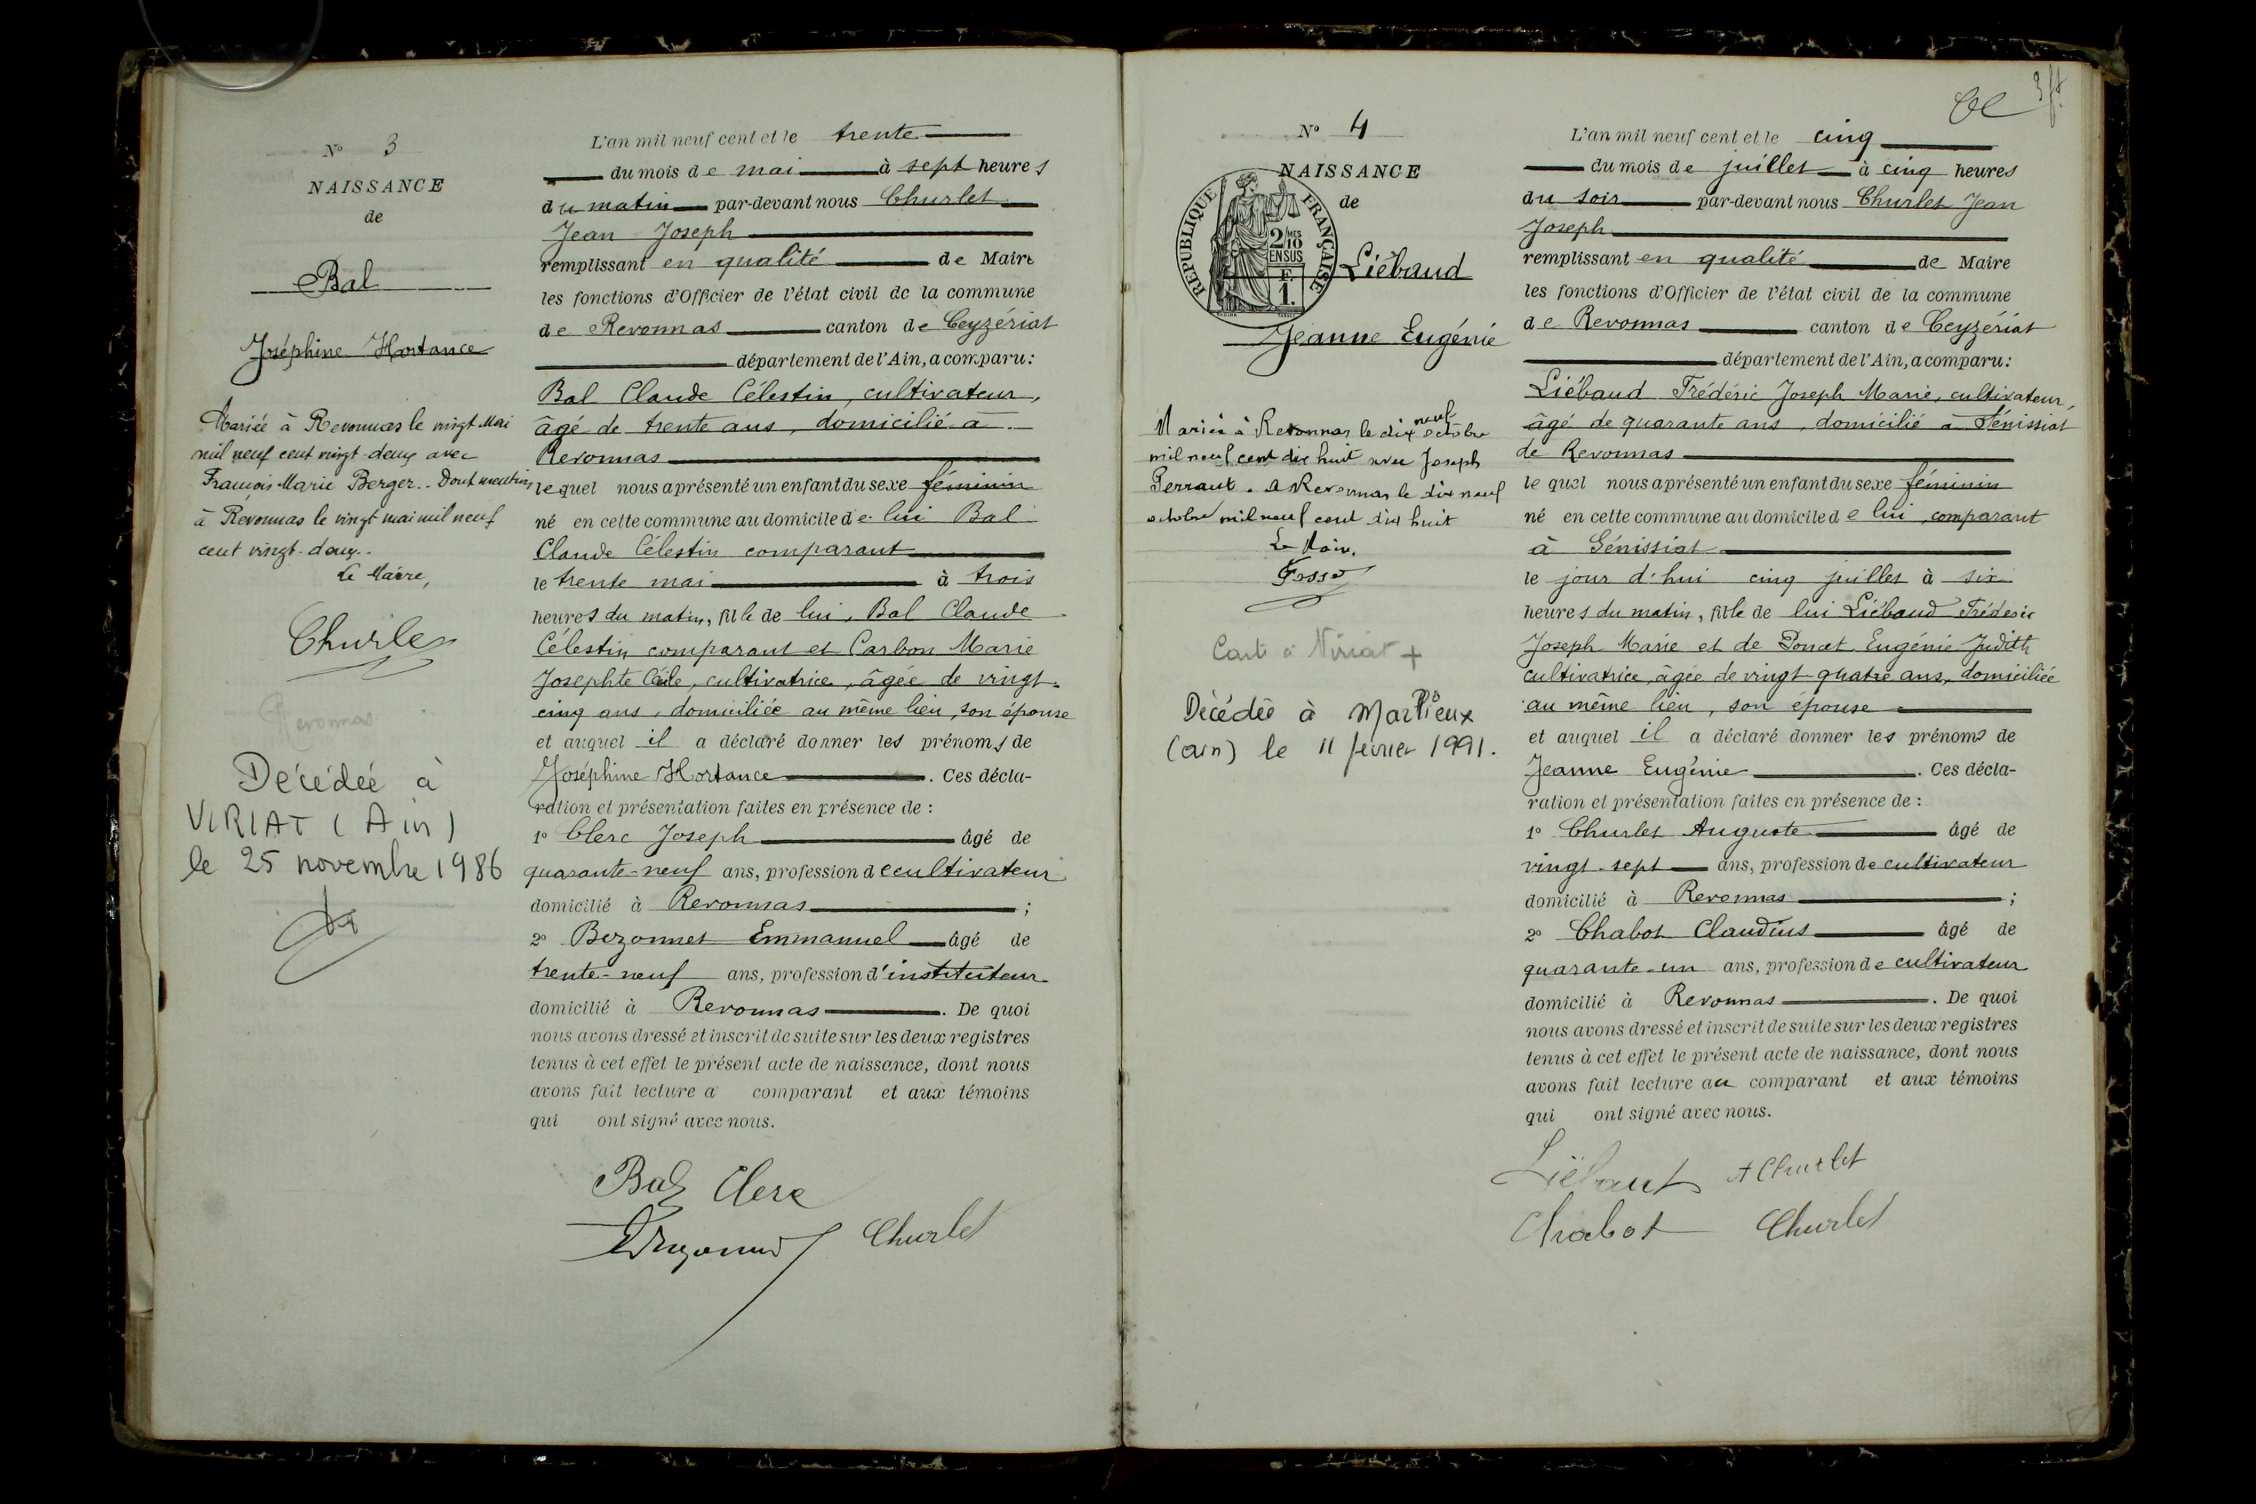 N° 3
NAISSANCE
de
Bal
Joséphine Hortance
Mariée à Revonnas le vingt Mai
mil neuf cent vingt-deux avec
François Marie Berger.. Dont mention
à Revonnas le vingt mai mil neuf
cent vingt-deux..
Le Maire,
Churlet
Revonnas
Décédée à
VIRIAT (Ain)
le 25 novembre 1986
L'an mil neuf cent et le trente
du mois de mai à sept heures
du matin par-devant nous Churlet
Jean Joseph
remplissant en qualité de Maire
les fonctions d'Officier de l'état civil de la commune
de Revonnas canton de Ceyzériat
département de l'Ain, a comparu:
Bal Claude Célestin, cultivateur,
âgé de trente ans, domicilié à
Revonnas
lequel nous a présenté un enfant du sexe féminin
né en cette commune au domicile de lui Bal
Claude Célestin comparant
le trente mai à trois
heures du matin, fille de lui, Bal Claude
Célestin comparant et Carbon Marie
Josephte Cécile, cultivatrice, âgée de vingt-
cinq ans, domiciliée au même lieu, son épouse
et auquel il a déclaré donner les prénoms de
Joséphine Hortance. Ces décla-
ration et présentation faites en présence de :
1° Clerc Joseph âgé de
quarante-neuf ans, profession de cultivateur
domicilié à Revonnas ;
2° Bozonnet Emmanuel âgé de
trente-neuf ans, profession d'instituteur
domicilié à Revonnas. De quoi
nous avons dressé et inscrit de suite sur les deux registres
tenus à cet effet le présent acte de naissance, dont nous
avons fait lecture a comparant et aux témoins
qui ont signé avec nous.
Bal Clerc
Churlet
3 ft
N° 4
NAISSANCE
de
REPUBLIQUE FRANÇAISE
2 MES 10
EN SUS
F.
1.
Liébaud
Jeanne Eugénie
Mariée à Revonnas le dix neuf octobre
mil neuf cent dix huit avec Joseph
Perraut. A Revonnas le dix neuf
octobre mil neuf cent dix huit
Le Maire.
Carte à Viriat +
Décédée à Marlieux
(ain) le 11 février 1991.
L'an mil neuf cent et le cinq
du mois de juillet à cinq heures
du soir par-devant nous Churlet Jean
Joseph
remplissant en qualité de Maire
les fonctions d'Officier de l'état civil de la commune
de Revonnas canton de Ceyzériat
département de l'Ain, a comparu:
Liébaud Frédéric Joseph Marie, cultivateur,
âgé de quarante ans, domicilié à Sénissiat
de Revonnas
le quel nous a présenté un enfant du sexe féminin
né en cette commune au domicile de lui, comparant
à Sénissiat
le jour d'hui cinq juillet à six
heures du matin, fille de lui Liébaud Fréderic
Joseph Marie et de Poncet Eugénie Judith
cultivatrice, âgée de vingt-quatre ans, domiciliée
au même lieu, son épouse
et auquel il a déclaré donner les prénoms de
Jeanne Eugénie. Ces décla-
ration et présentation faites en présence de :
1° Churlet Auguste âgé de
vingt-sept ans, profession de cultivateur
domicilié à Revonnas ;
2° Chabot Claudius âgé de
quarante-un ans, profession de cultivateur
domicilié à Revonnas. De quoi
nous avons dressé et inscrit de suite sur les deux registres
tenus à cet effet le présent acte de naissance, dont nous
avons fait lecture au comparant et aux témoins
qui ont signé avec nous.
Liébaut A Churlet
Chabot Churlet